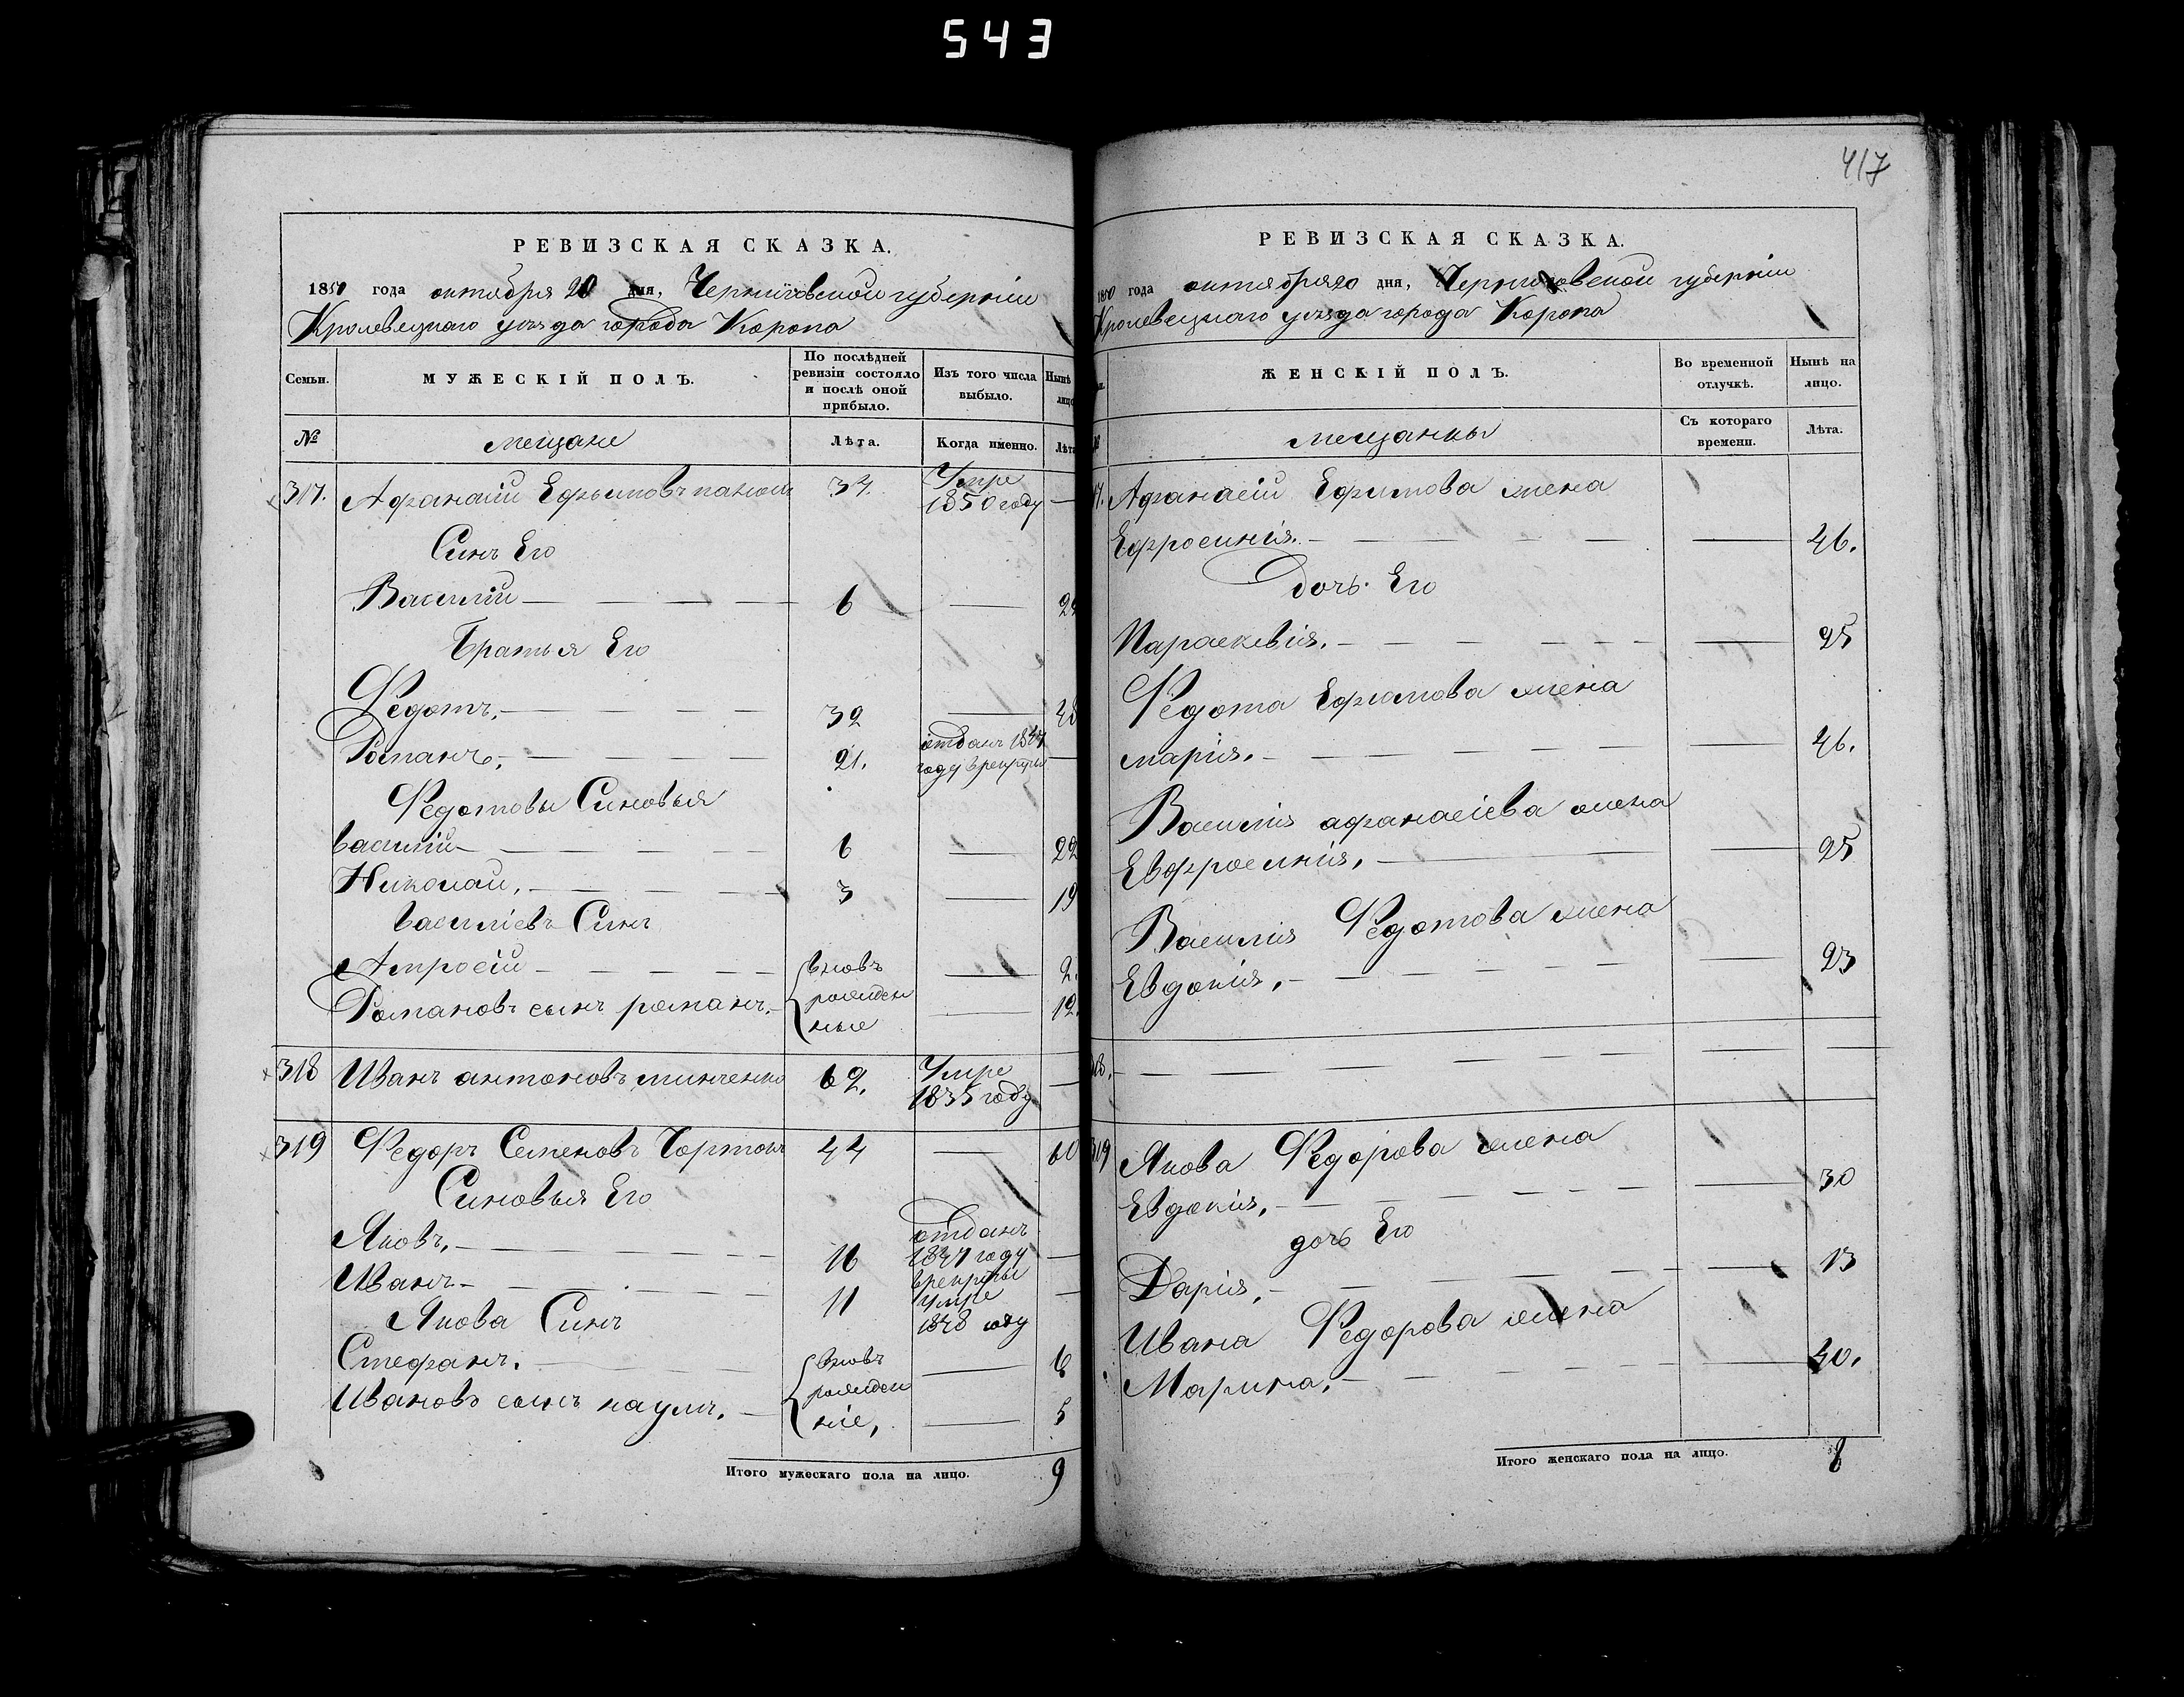 543
417
РЕВИЗСКАЯ СКАЗКА.
1850 года октября 20 дня, Черниговской губерніи
Кролевецкаго уезда города Коропа
Семьи.
МУЖЕСКІЙ ПОЛЪ.
По послѣдней ревизіи состояло и послѣ оной прибыло.
Изъ того числа выбыло.
Нынѣ
№
мещане
Лѣта.
Когда именно.
317. Афанасіи Ефимовъ 34. Умре 1850 году —
Синъ Его
Василіи — 6 —
Братья Его
Федотъ, — 32 — 48
Романъ, — 21. отданъ 1847 году в рекруты —
Федотовы Синовья
василіи — 6 — 22
Николаи, — 3 — 19
василіевъ Синъ
Амросіи — вновь рожденные — 2.
Романовъ сынъ романъ. — 12.
318 Иванъ антоновъ минченко 62. Умре 1835 году —
319 Федоръ Семеновъ 44 — 60
Синовья Его
Яковъ, — 16 отданъ 1847 году врекруты —
Иванъ — 11 Умре 1848 году —
Якова Синъ
Стефанъ. — вновь рожденніе, — 6
Ивановъ сынъ наумъ. — 5
Итого мужескаго пола на лицо. 9
РЕВИЗСКАЯ СКАЗКА.
1850 года октября 20 дня, Черниговской губерніи
Кролевецкаго уезда города Коропа
ЖЕНСКІЙ ПОЛЪ.
Во временной отлучкѣ.
Нынѣ на лицо.
мещанки
Съ котораго времени.
Лѣта.
Афанасіи Ефимова жена
Ефросинія. — — 46.
дочь Его
Параскевія. — — 25
Федота Ефимова жена
марія. — — 46.
Василія афанасіева жена
Евфросинія, — — 25
Василия Федотова жена
Евдокія, — — 23
319 Якова Федорова жена
Евдокія, — — 30
дочь Его
Дарія, — — 13
Ивана Федорова жена
Марина, — — 30.
Итого женскаго пола на лицо. 8